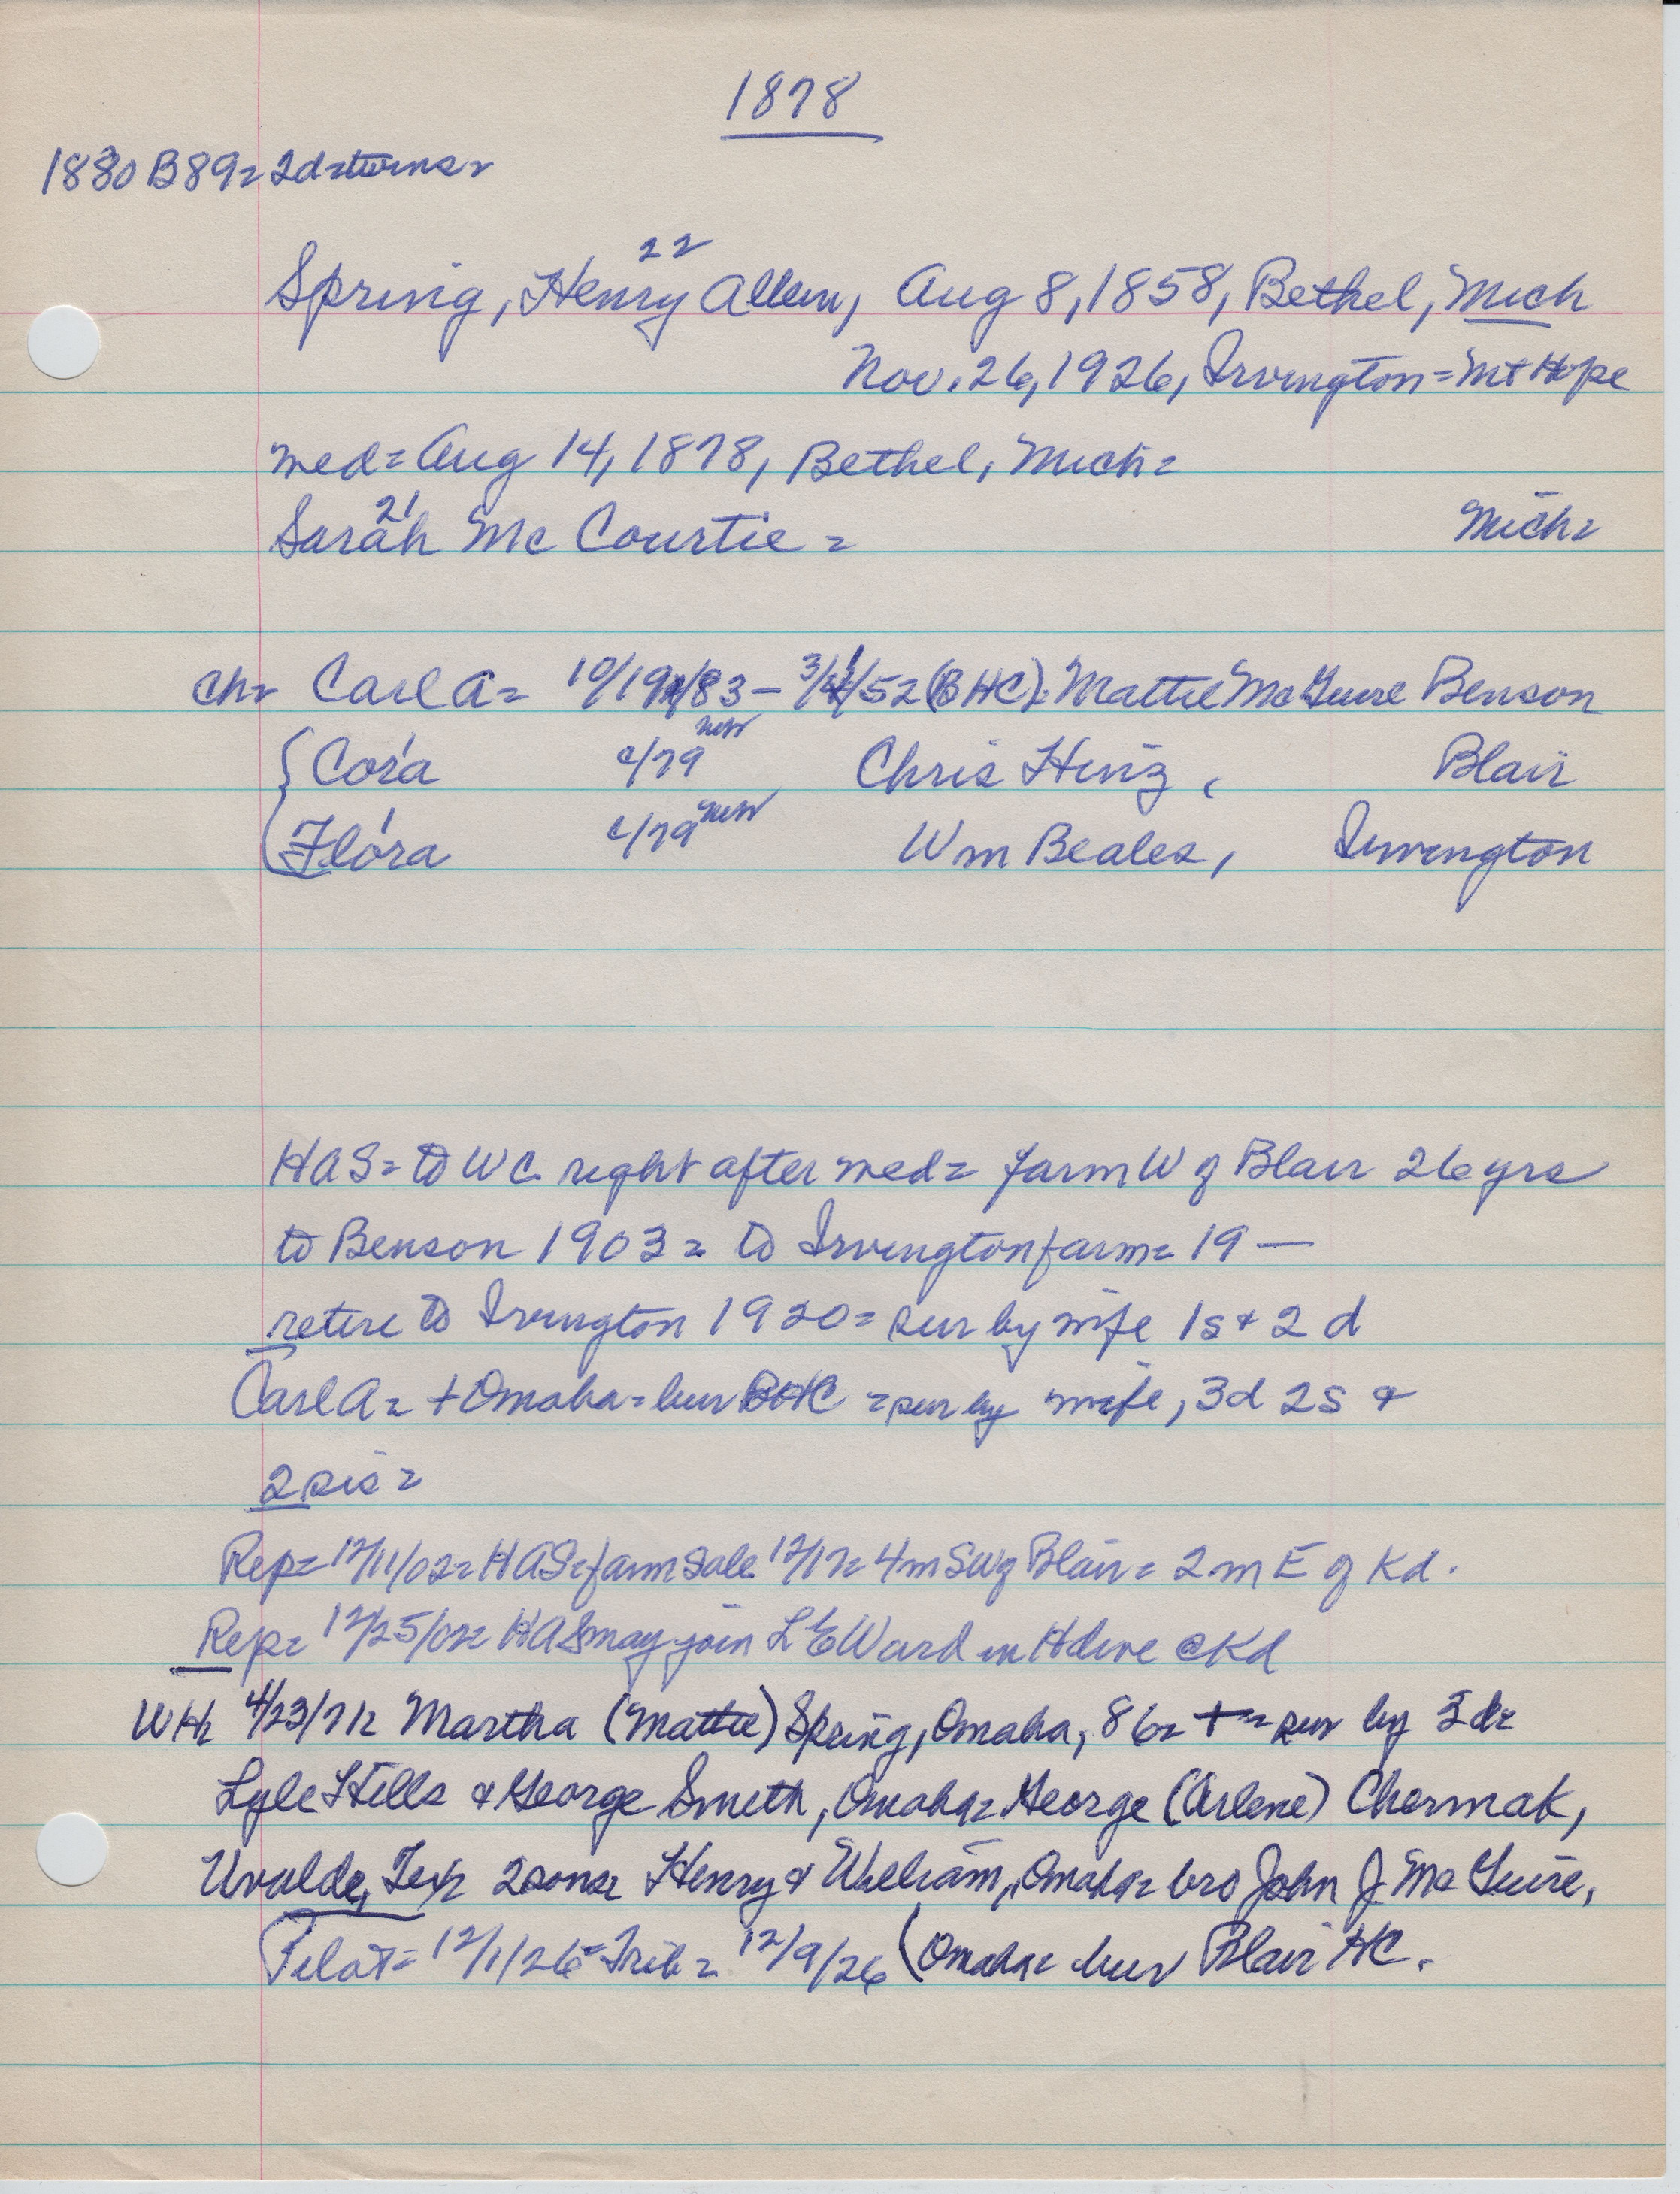 1878
1880 B89= 2d=twins=
22
Spring, Henry Allen, Aug 8, 1858, Bethel, Mich
Nov. 26, 1926, Irvington = Mt Hope
med= Aug 14, 1878, Bethel, Mich=
21
Sarah Mc Courtie = Mich=
ch= Carl A= 10/19/83 - 3/ /52 (BHC). Mattie McGuire Benson
Cora 1 c/79 Chris Hinz, Blair
Flora 1 c/79 Wm Beales, Irvington
HAS= to WC right after med= farm W of Blair 26 yrs
to Benson 1903 = to Irvington farm= 19 —
retire to Irvington 1920= sur by wife 1s + 2 d
Carl A= + Omaha= bur BHC = sur by wife, 3d 2s &
2 sis =
Rep= 12/11/02= HAS= farm sale 12/17= 4m SW of Blair = 2 m E of Kd.
Rep= 12/25/02= HAS may join L E Ward in Hdwe @ Kd
WH= 4/23/71= Martha (Mattie) Spring, Omaha, 86= + = sur by 3d=
Lyle Hills & George Smith, Omaha= George (Arlene) Chermak,
Uvalde, Tex= 2sons= Henry & William, Omaha= bro John J. McGuire,
Pilot= 12/1/26= Trib= 12/9/26 (Omaha= bur Blair HC.